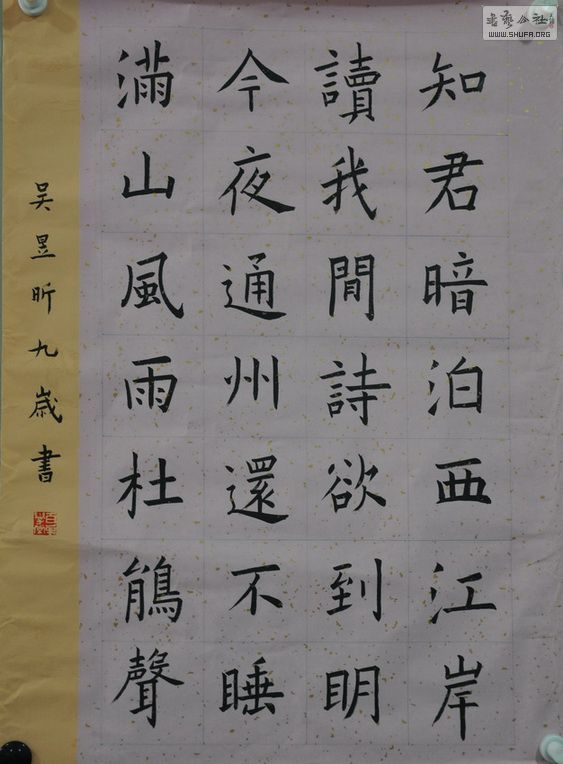 知君暗泊西江岸
讀我閒詩欲到明
今夜通州還不睡
滿山風雨杜鵑聲
吴昱昕九歲書
書藝公社
WWW.SHUFA.ORG